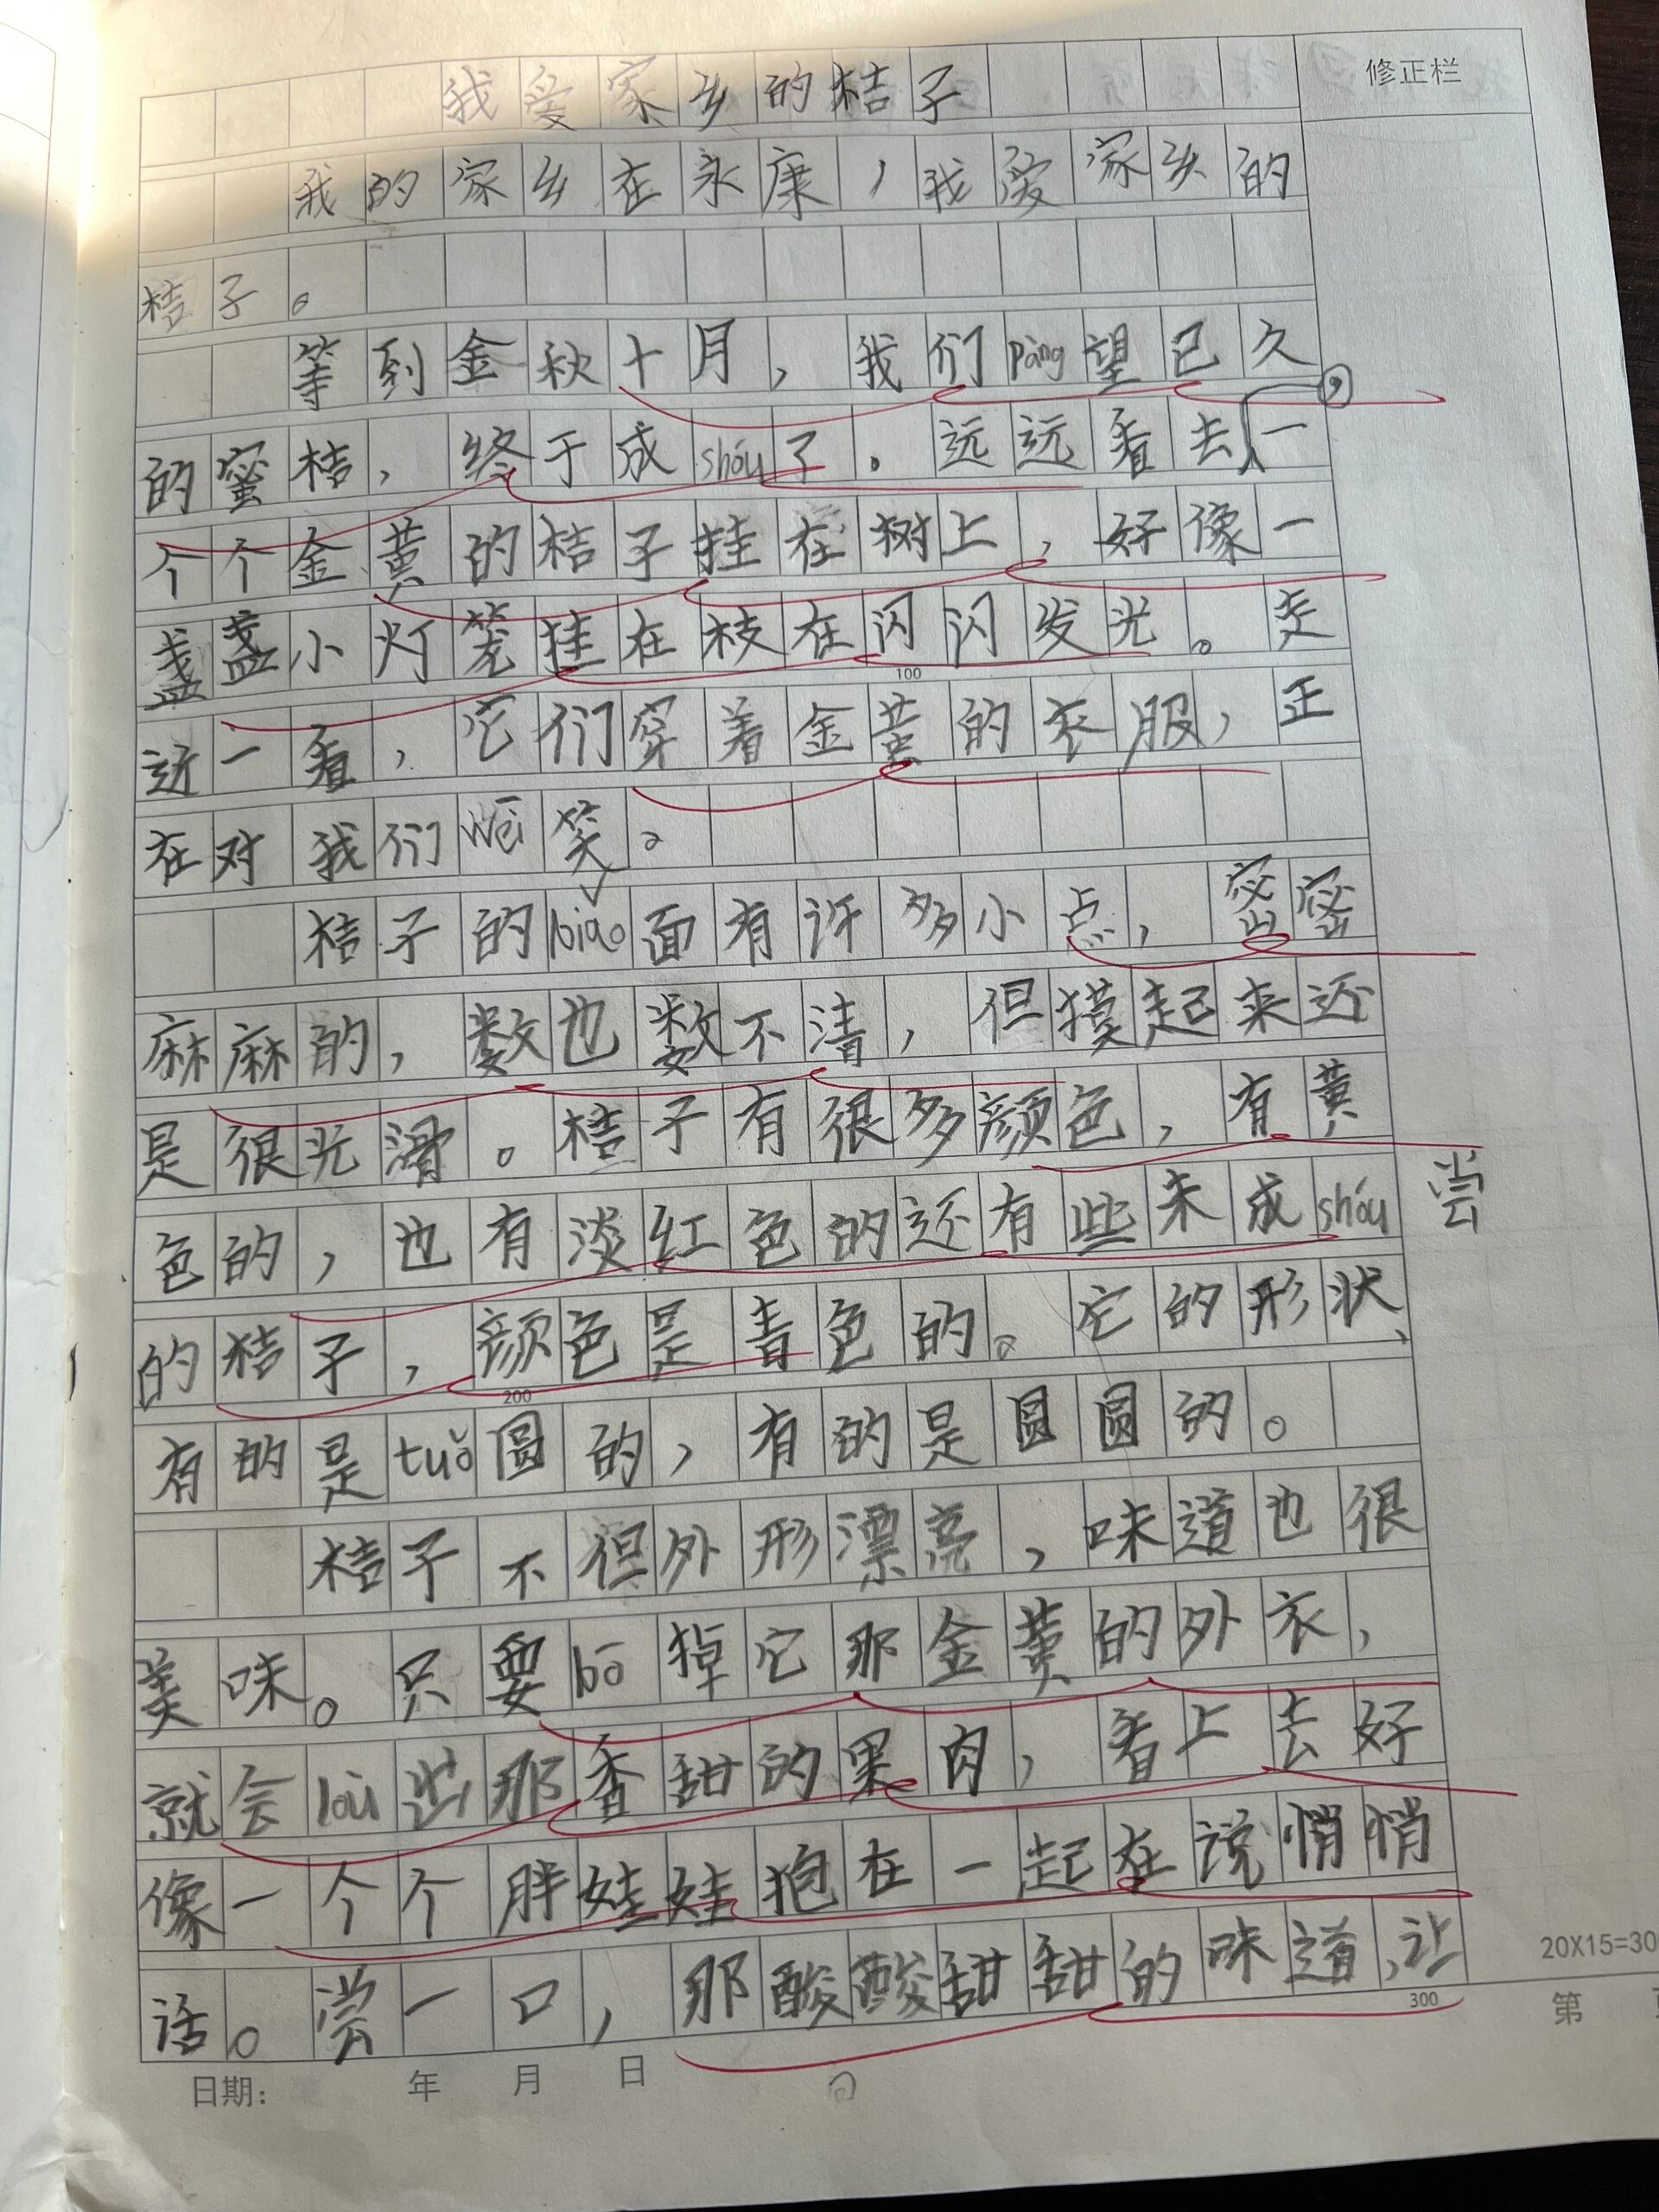 修正栏
我爱家乡的桔子
我的家乡在永康，我爱家乡的
桔子。
等到金秋十月，我们pàng望已久
的蜜桔，终于成shóu了。远远看去，一
个个金黄的桔子挂在树上，好像一
盏盏小灯笼挂在枝在闪闪发光。走
近一看，它们穿着金黄的衣服，正
在对我们wēi笑。
桔子的biǎo面有许多小点，密密
麻麻的，数也数不清，但摸起来还
是很光滑。桔子有很多颜色，有黄
色的，也有淡红色的还有些未成shóu
尝
的桔子，颜色是青色的。它的形状、
有的是tuǒ圆的，有的是圆圆的。
桔子不但外形漂亮，味道也很
美味。只要bō掉它那金黄的外衣，
就会lòu出那香甜的果肉，看上去好
像一个个胖娃娃抱在一起在说悄悄
话。尝一口，那酸酸甜甜的味道，让
100
200
300
20X15=30
第
日期： 年 月 日